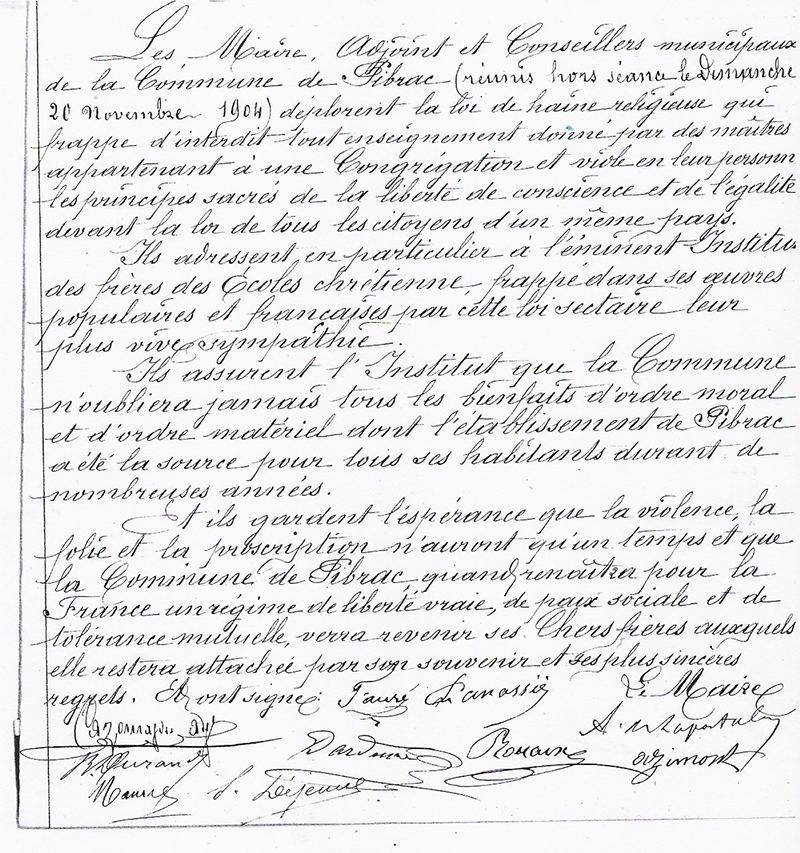 Les Maire, Adjoint et Conseillers municipaux
de la Commune de Pibrac (réunis hors séance le Dimanche
20 Novembre 1904) déplorent la loi de haine religieuse qui
frappe d'interdit tout enseignement donné par des maîtres
appartenant à une Congrégation et viole en leur personn
les principes sacrés de la liberté de conscience et de l'égalité
devant la loi de tous les citoyens d'un même pays.
Ils adressent en particulier à l'éminent Institu
des frères des Écoles chrétienne, frappé dans ses œuvres
populaires et françaises par cette loi sectaire leur
plus vive sympathie.
Ils assurent l'Institut que la Commune
n'oubliera jamais tous les bienfaits d'ordre moral
et d'ordre matériel dont l'établissement de Pibrac
a été la source pour tous ses habitants durant de
nombreuses années.
Et ils gardent l'espérance que la violence, la
folie et la proscription n'auront qu'un temps et que
la Commune de Pibrac, quand renaîtra pour la
France un régime de liberté vraie, de paix sociale et de
tolérance mutuelle, verra revenir ses Chers frères auxquels
elle restera attachée par son souvenir et ses plus sincères
regrets. Et ont signé: Fauré Lanassié Le Maire
Dardenne Romain
B. Durand azimont
S. Déjeune